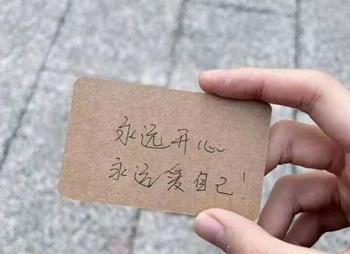 永远开心
永远爱自己!